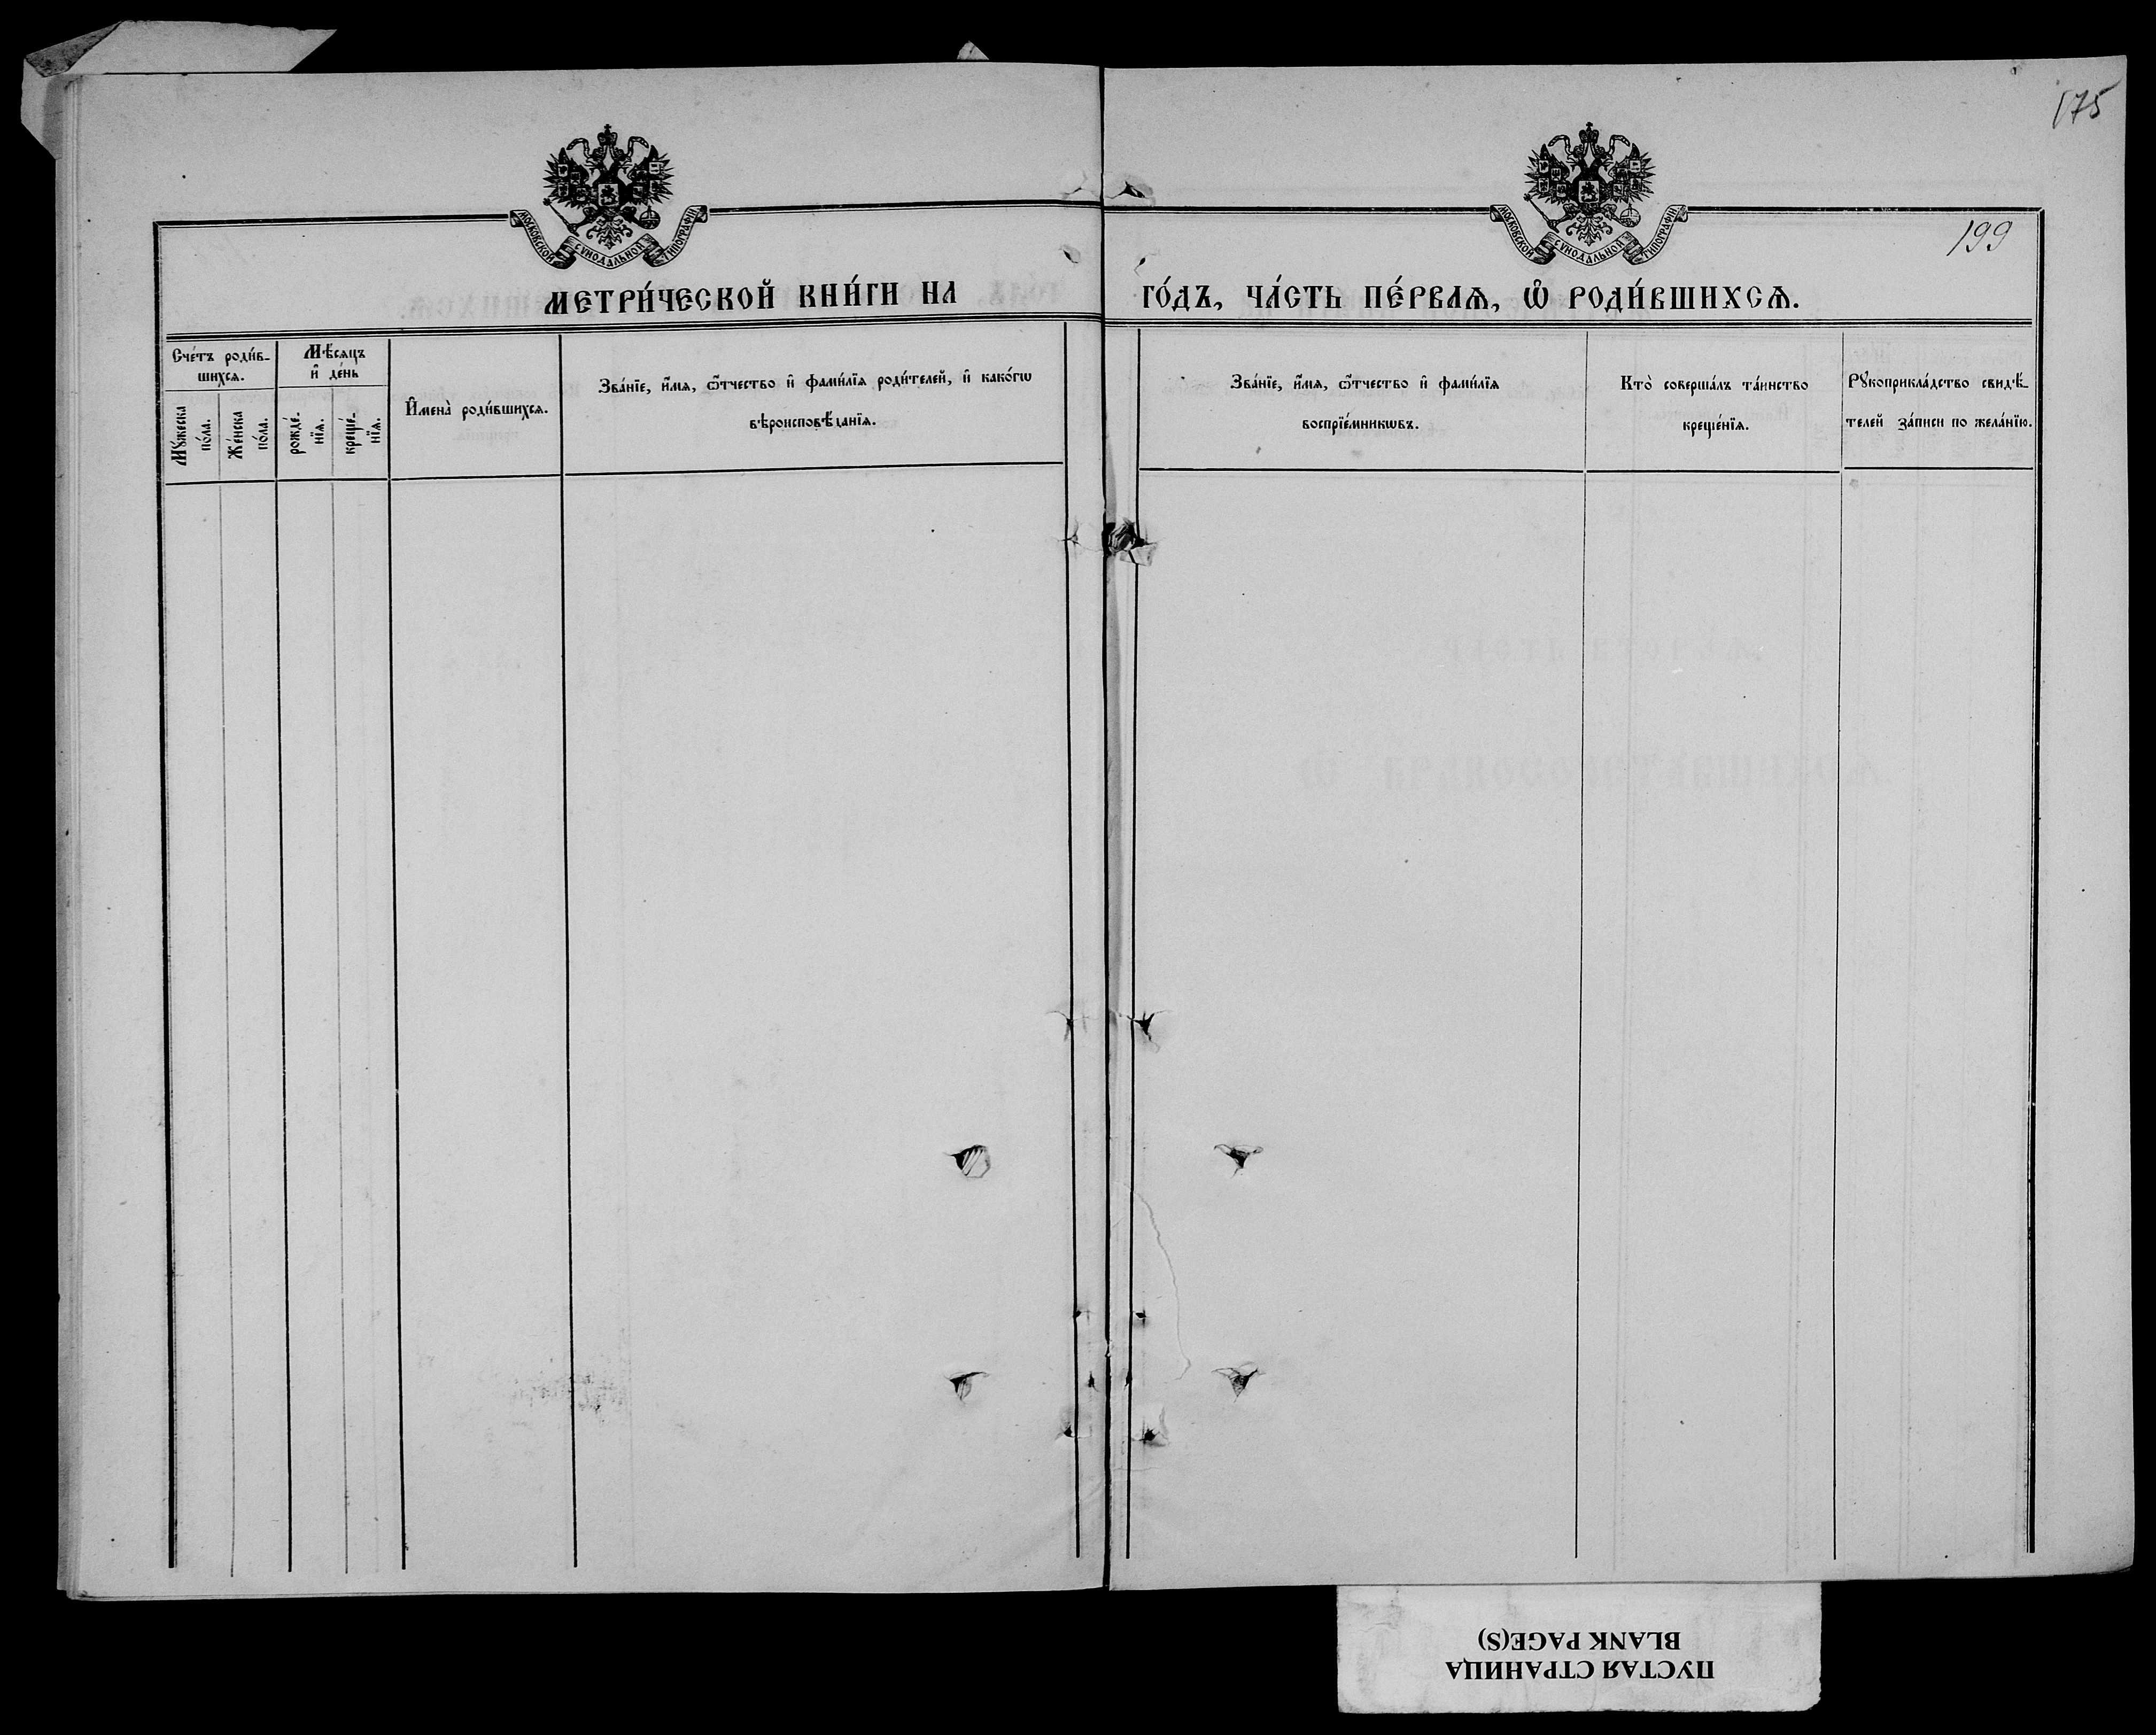 175
МОСКОВСКОЙ СѴНОДАЛЬНОЙ ТИПОГРАФІИ
МОСКОВСКОЙ СѴНОДАЛЬНОЙ ТИПОГРАФІИ
199
МЕТРИ́ЧЕСКОЙ КНИ́ГИ НА
ГО́ДЪ, ЧА́СТЬ ПЕ́РВАѦ, Ѡ҆ РОДИ́ВШИХСѦ.
Сче́тъ роди́в-
шихсѧ.
Мꙋ́жеска
по́ла.
Же́нска
по́ла.
Мѣ́сѧцъ
и҆ де́нь
рожде́-
нїѧ.
креще́-
нїѧ.
И҆мена̀ роди́вшихсѧ.
Зва́нїе, и҆́мѧ, ѻ҆́тчество и҆ фами́лїѧ роди́телей, и҆ како́гѡ
вѣроисповѣ́данїѧ.
Зва́нїе, и҆́мѧ, ѻ҆́тчество и҆ фами́лїѧ
воспрїе́мникѡвъ.
Кто̀ соверша́лъ та́инство
креще́нїѧ.
Рꙋкоприкла́дство свидѣ́-
телей за́писи по жела́нїю.
ПУСТАЯ СТРАНИЦА
BLANK PAGE(S)